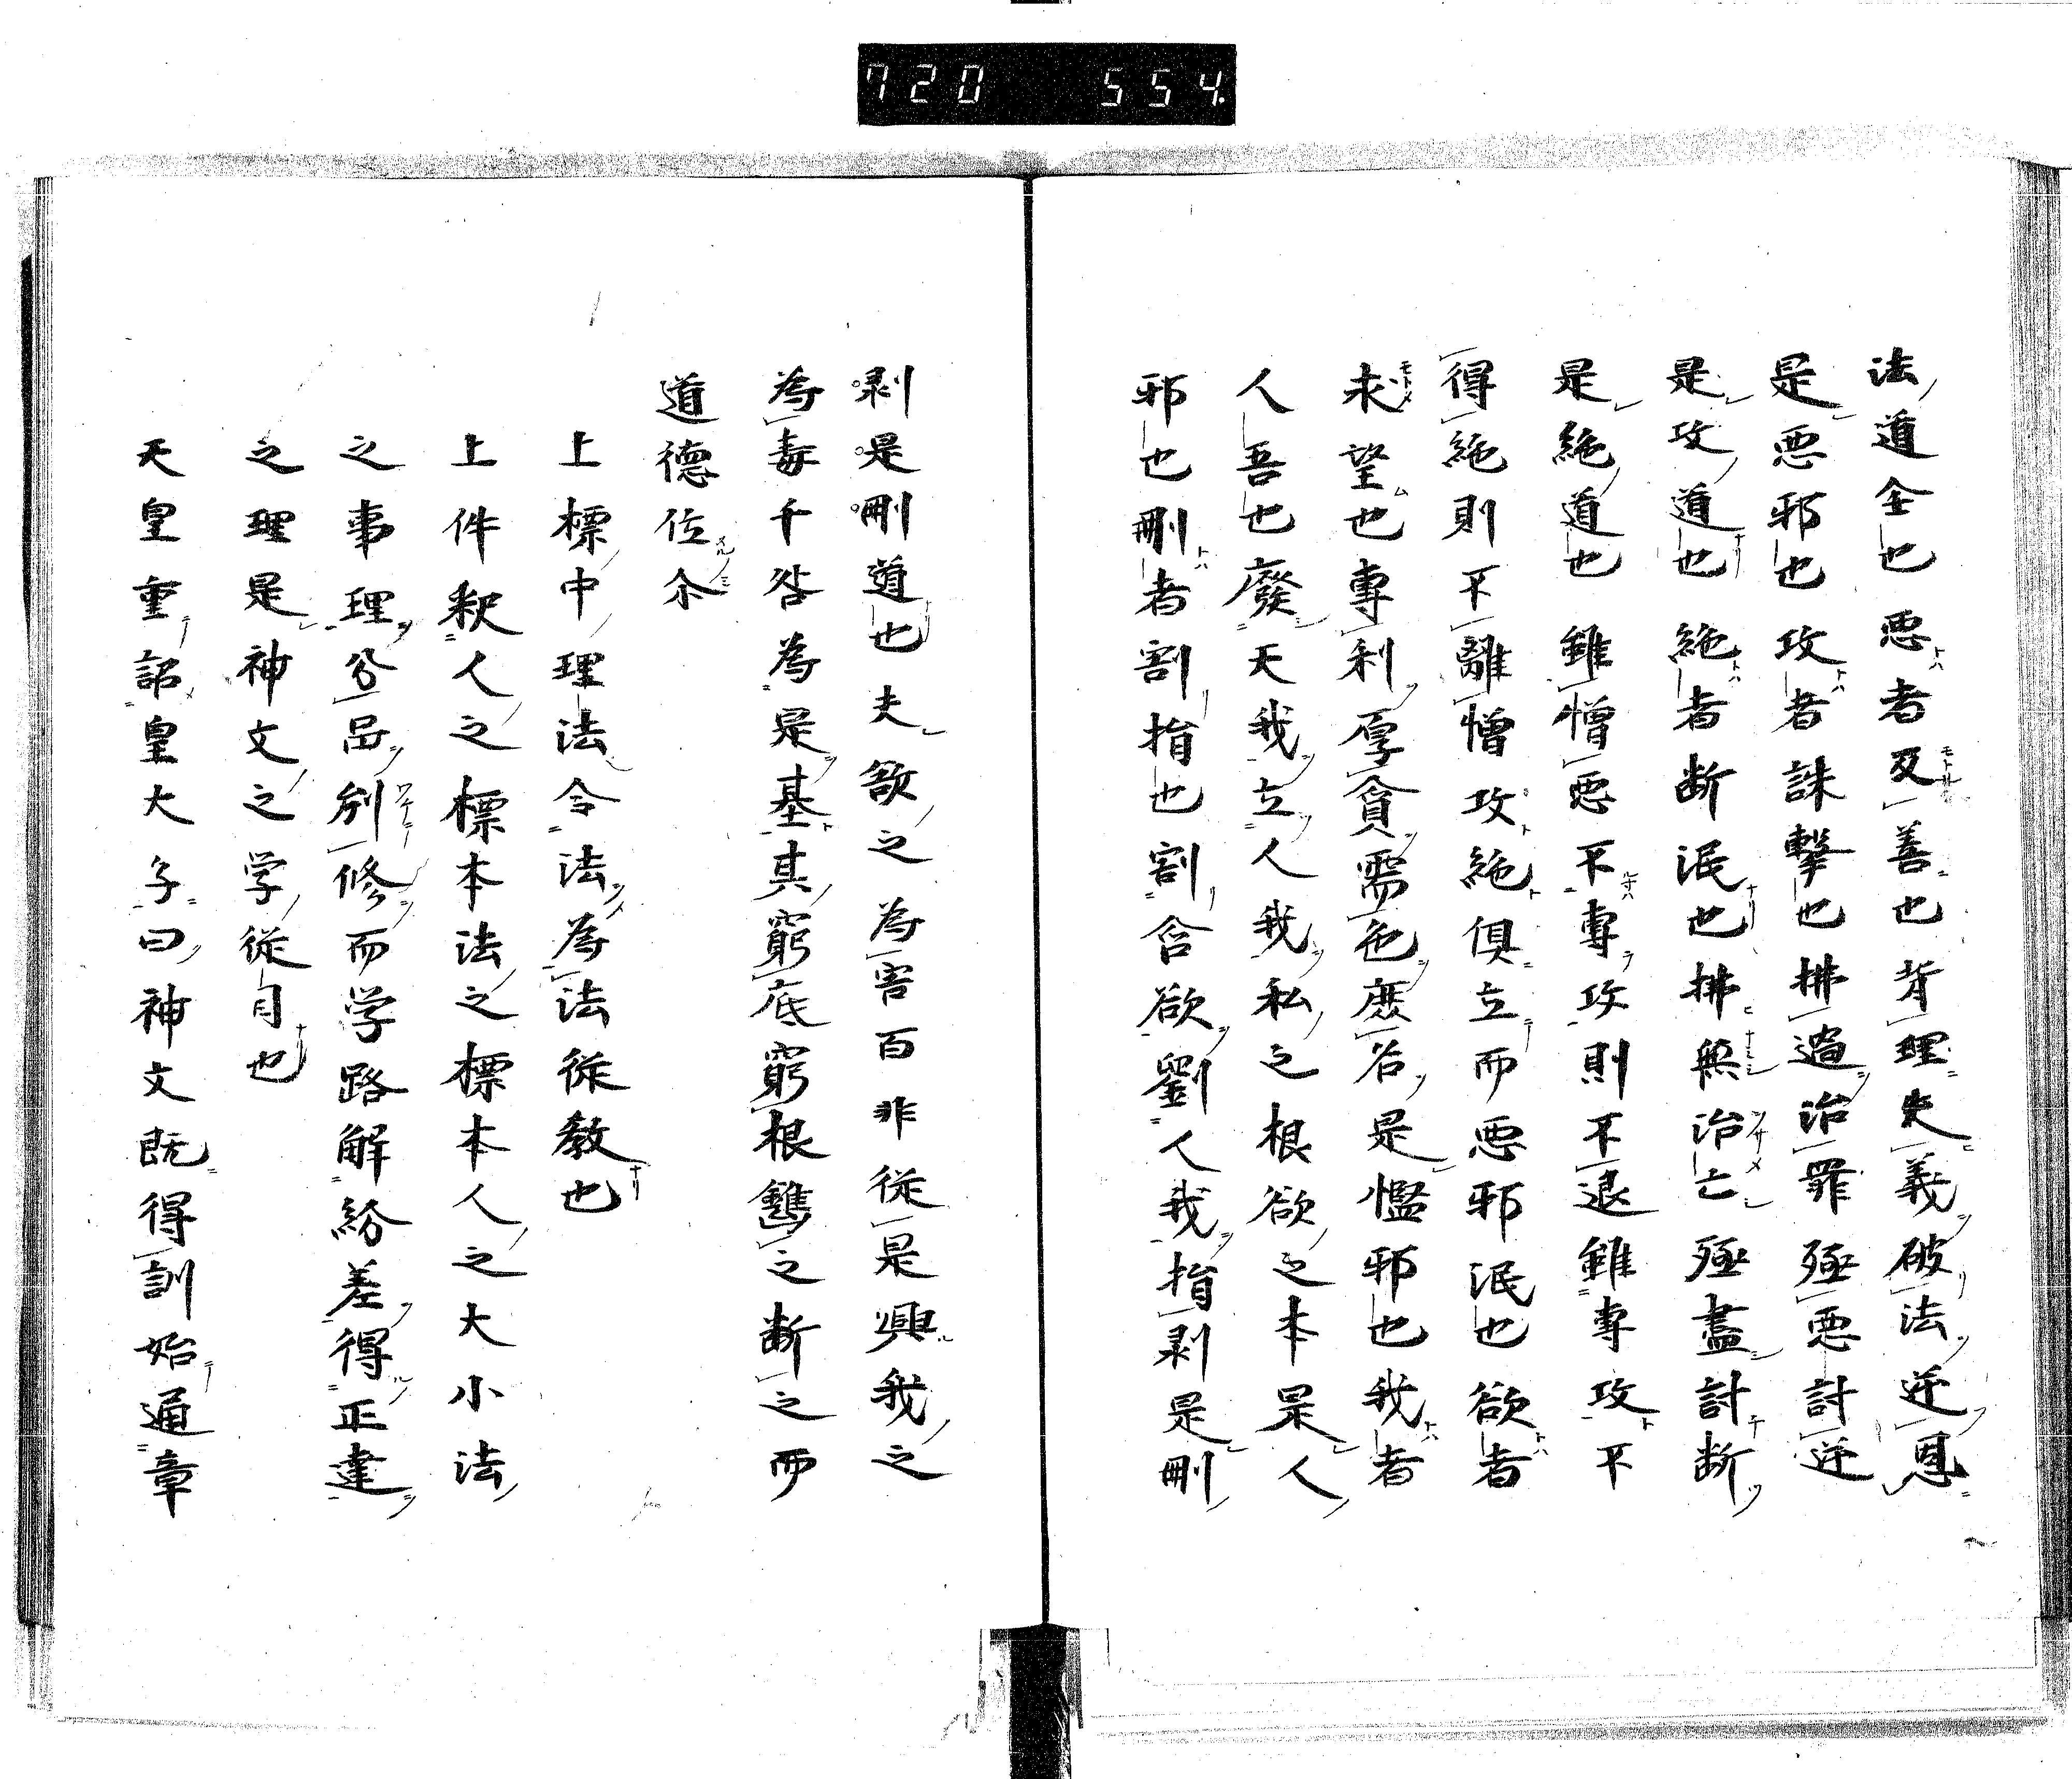 720 554.
法道全也悪者反善也背理失義破法逆恩
是悪邪也攻者誅撃也拂過治罪殛悪討逆
是攻道也絶者断泯也拂無治亡殛盡討断
是絶道也雖憎悪不專攻則不退雖專攻不
得絶則不離憎攻絶俱立而悪邪泯也欲者
求望也專利厚貪需色庶谷是濫邪也我者
人吾也廢天我立人我私之根欲之本是人
邪也刪者割揹也割含欲劉人我揹剥是刪
剥是刪道也夫欲之為害百非従是興我之
為毒千咎為是基其窮底窮根雋之断之而
道德位尒
上標中理法令法為法従教也
上件釈人之標本法之標本人之大小法
之事理分品別修而学路解紛差得正達
之理是神文之学従自也
天皇重詔皇大子曰神文既得訓始通章